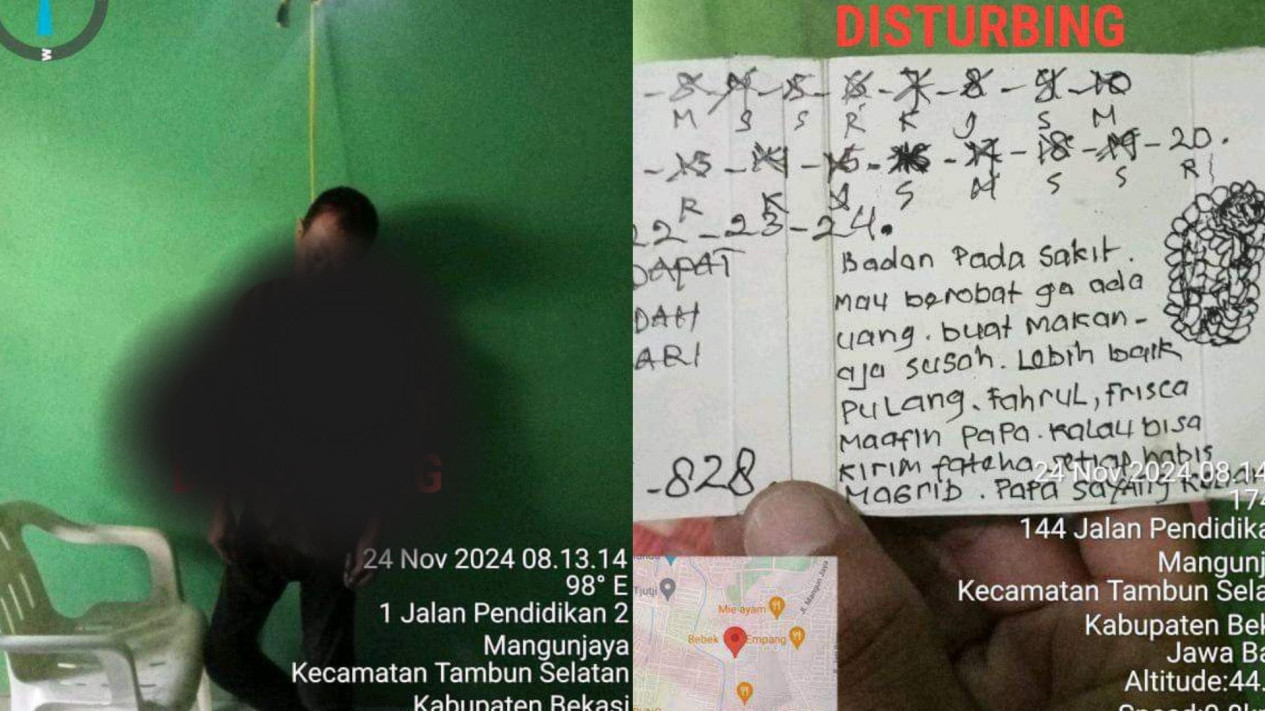 W
24 Nov 2024 08.13.14
98° E
1 Jalan Pendidikan 2
Mangunjaya
Kecamatan Tambun Selatan
Kabupaten Bekasi
DISTURBING
M S S R K J S M
20.
R K J S M S S R
22-23-24.
DAPAT
DAH
ARI
-828.
Badan Pada Sakit.
mau berobat ga ada
uang. buat makan-
aja susah. Lebih baik
Pulang. Fahrul, Frisca
Maafin PaPa. Kalau bisa
Kirim fateha setiap habis
Magrib. Papa Sayang
24 Nov 2024 08.14
174
144 Jalan Pendidika
Mangunj
Kecamatan Tambun Sela
Kabupaten Bek
Jawa Ba
Altitude:44.
Tjutji
Mie ayam
Jl. Mangun Jaya
Bebek Empang